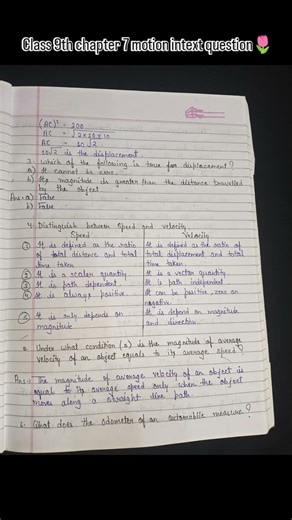 Class 9th chapter 7 motion intext question🌷
(AC)² = 200
AC = √2×10×10
AC = 10√2
10√2 is the displacement.
3. Which of the following is true for displacement?
a) It cannot be zero.
b) Its magnitude is greater than the distance travelled
by the object
Ans:- a) False
b) False
4. Distinguish between speed and velocity.
Speed Velocity
① It is defined as the ratio It is defined as the ratio of
of total distance and total total displacement and total
time taken time taken.
② It is a scalar quantity It is a vector quantity
③ It is path dependent. It is path independent
④ It is always positive It can be positive, zero or
negative.
⑤ It is only depends on It is depend on magnitude
magnitude and direction.
5. Under what condition (s) is the magnitude of average
velocity of an object equals to its average speed?
Ans:- The magnitude of average velocity of an object is
equal to its average speed only when the object
moves along a straight line path.
6. What does the odometer of an automobile measure?